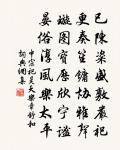 已陳粢盛敷嚴祀
更奏笙鏞協雅聲
璇圖寶曆欣寧謐
晏俗淳風樂太平
中宗祀昊天樂章舒和
詞典網集